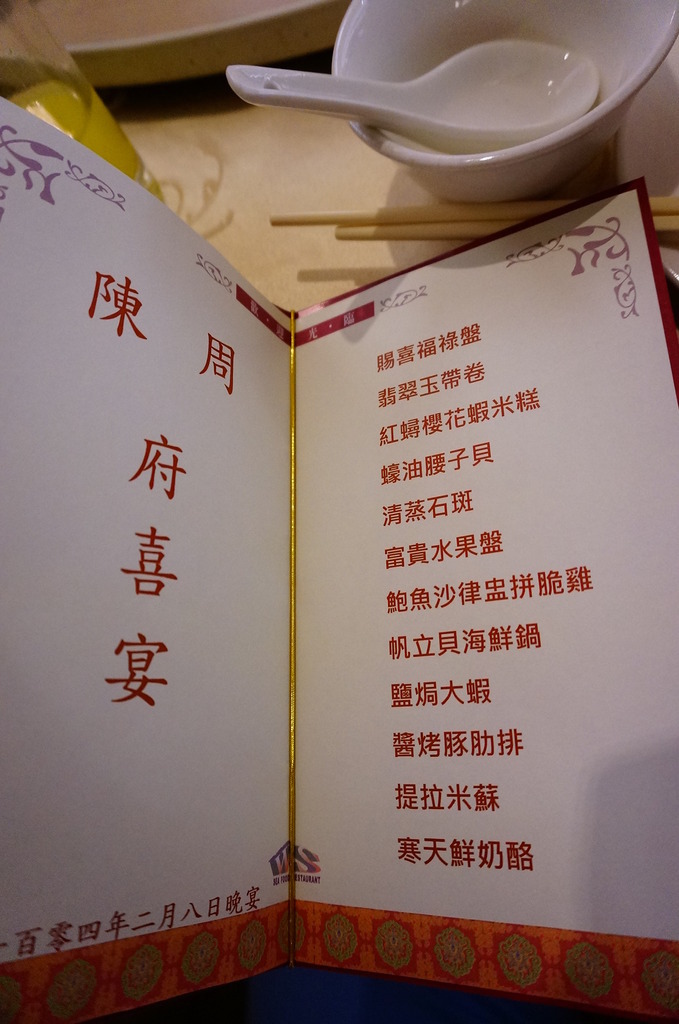 陳 周
府
喜
宴
一百零四年二月八日晚宴
光・臨
賜喜福祿盤
翡翠玉帶卷
紅蟳櫻花蝦米糕
蠔油腰子貝
清蒸石斑
富貴水果盤
鮑魚沙律盅拼脆雞
帆立貝海鮮鍋
鹽焗大蝦
醬烤豚肋排
提拉米蘇
寒天鮮奶酪
SEA FOOD RESTAURANT